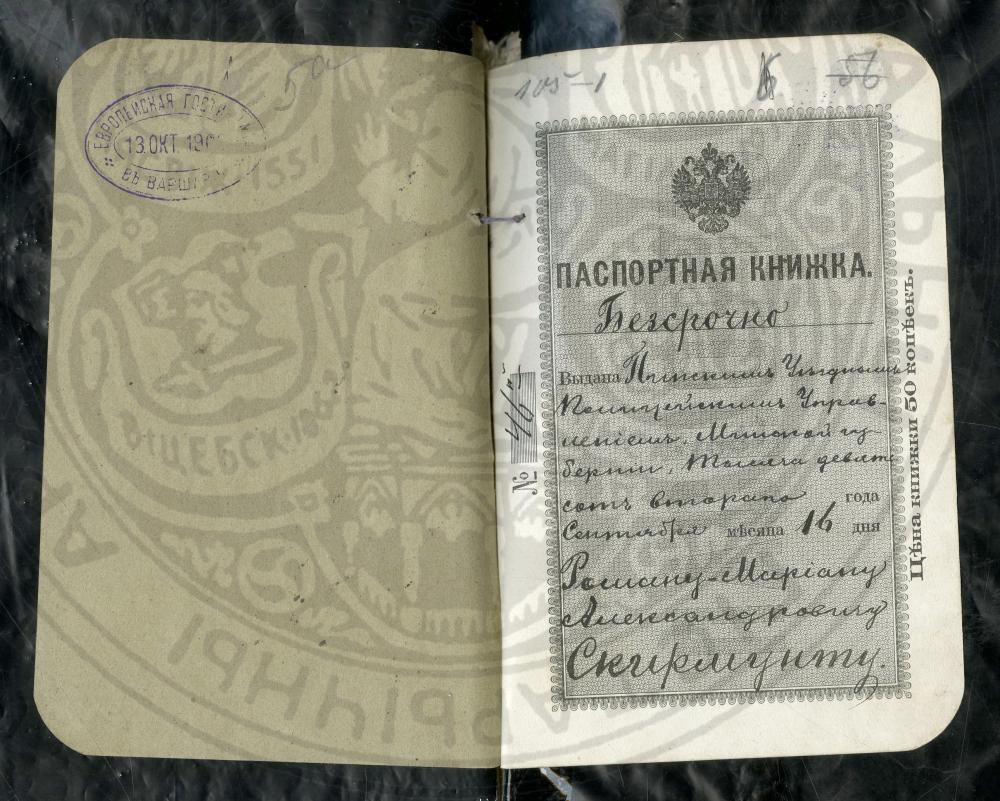 ЕВРОПЕЙСКАЯ
13 ОКТ. 190
ВЪ ВАРШ
5а
105-1
56
ПАСПОРТНАЯ КНИЖКА.
Безсрочно
Выдана Пинскимъ Уѣзднымъ
Полицейскимъ Управ-
леніемъ, Минской гу-
берніи, Тысяча девять
сотъ второго года
Сентября мѣсяца 16 дня
Роману-Маріану
Александровичу
Скирмунту.
№ 46
Цѣна книжки 50 копѣекъ.
1551
ВІЦЕБСК